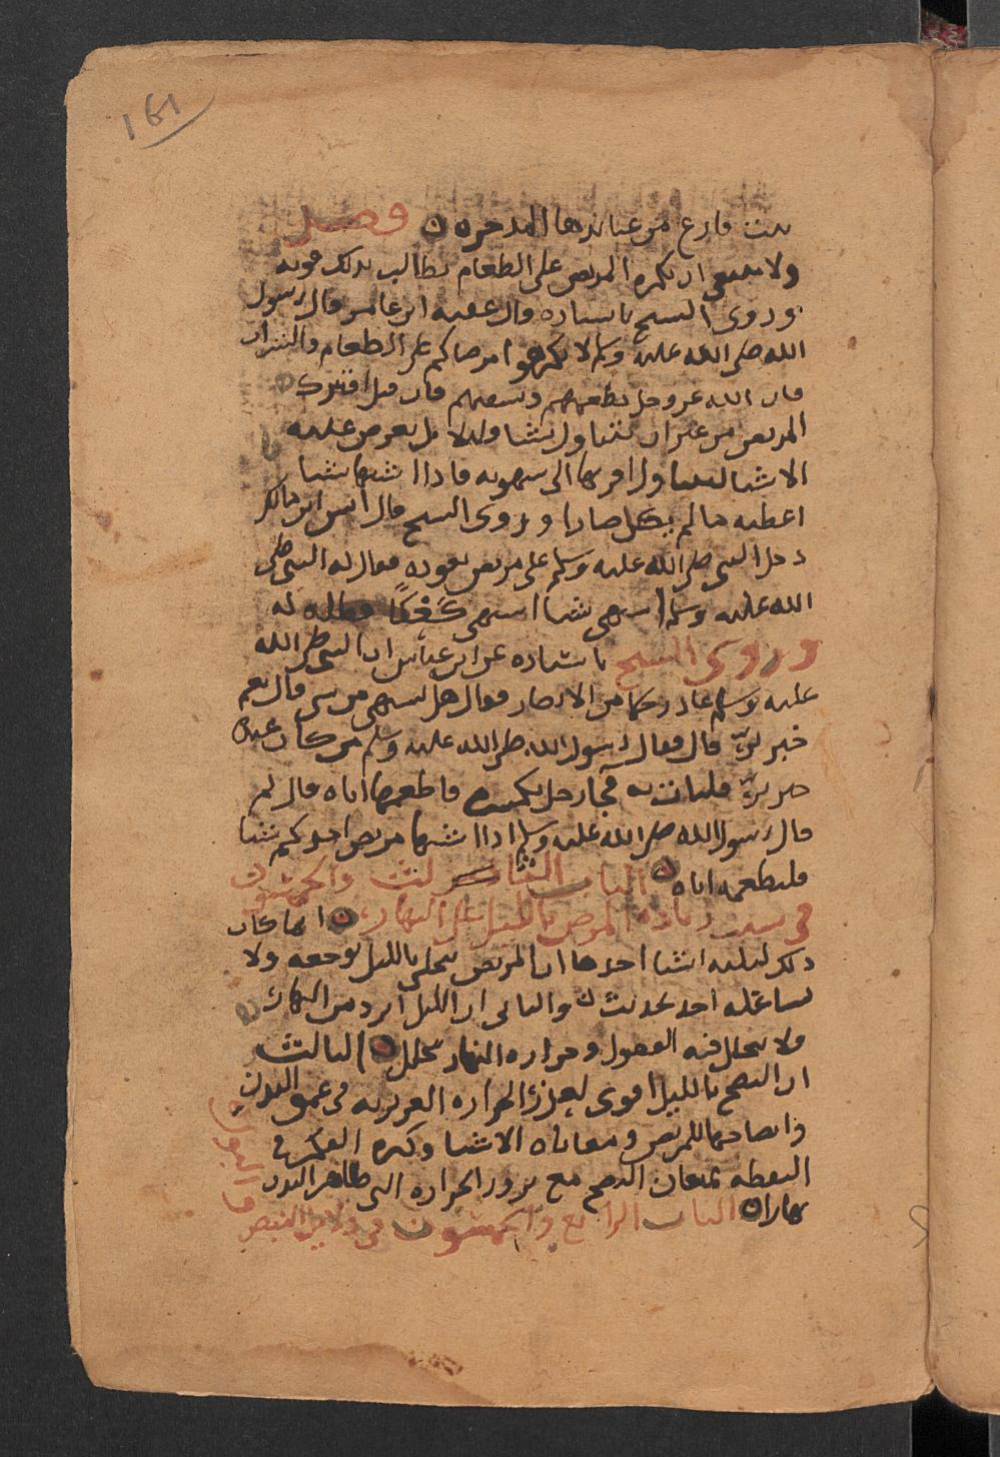 161
بيت فارغ من عباندها المدخره ن فصل
ولا ينبغي ان تكره المريض على الطعام يطالب بذلك قوته
وروى الشيخ باسناده قال عقبه ابن عامر قال رسول
الله صلى الله عليه وسلم لا تكرهوا مرضاكم على الطعام والشراب
فان الله عز وجل يطعمهم ويسقيهم فان قيل افيترك
المريض من غير ان يتناول شيا قلنا لا بل يعرض عليه
الاشيا ليتناول اقربها الى شهوته فاذا اشتها شيا
اعطيه ما لم يكن ضارا وروى الشيخ قال انس ابن مالك
دخل النبي صلى الله عليه وسلم على مريض يعوده فقال له النبي صلى
الله عليه وسلم اتشتهي شيا اتشتهي كعكا له
وروى الشيخ باسناده عن ابن عباس ان النبي صلى الله
عليه وسلم عاد رجلا من الانصار فقال هل تشتهي من شي قال نعم
خبز بر قال فقال رسول الله صلى الله عليه وسلم من كان عنده
خبز بر فليات به فجا رجل بكسره فاطعمها اياه قال ثم
قال رسول الله صلى الله عليه وسلم اذا اشتها مريض احدكم شيا
فليطعمه اياه ن الباب الثالث والخمسون
في سبب زياده المرض بالليل على النهار ن انما كان
ذلك لثلثه اشيا احدها ان المريض يتخلى بالليل بوجعه ولا
يشاغله احد بحديث ن والثاني ان الليل ابرد من النهار
ولا يتحلل فيه الفضول وحراره النهار تحلل ن الثالث
ان النضج بالليل اقوى لغزر الحراره الغريزيه في عمق البدن
وانضاجها للمرض ومعاناه الاشيا وكثره الفكر في
اليقظه يمنعان النضج مع بروز الحراره الى ظاهر البدن
نهارا ن الباب الرابع والخمسون في دلايل النبض
والبول